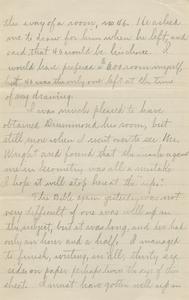 the way of a room, no 46. He asked
me to draw for him when he left, and
said that 43 would be his choice. I
would have prefered a $200 room myself,
but 43 was the only one left at the time
of my drawing.
I was much pleased to have
obtained Drummond his room, but
still more when I went over to see Mr.
Wright and found that the mark against
me in Geometry was all a mistake.
I hope it will stop here at the
The Bible exam yesterday was not
very difficult if one was well up in
the subject, but it was long, and we had
only an hour and a half. I managed
to finish, writing, in all, thirty six
sides on paper perhaps twice the size of this
sheet. I must have gotten well up in